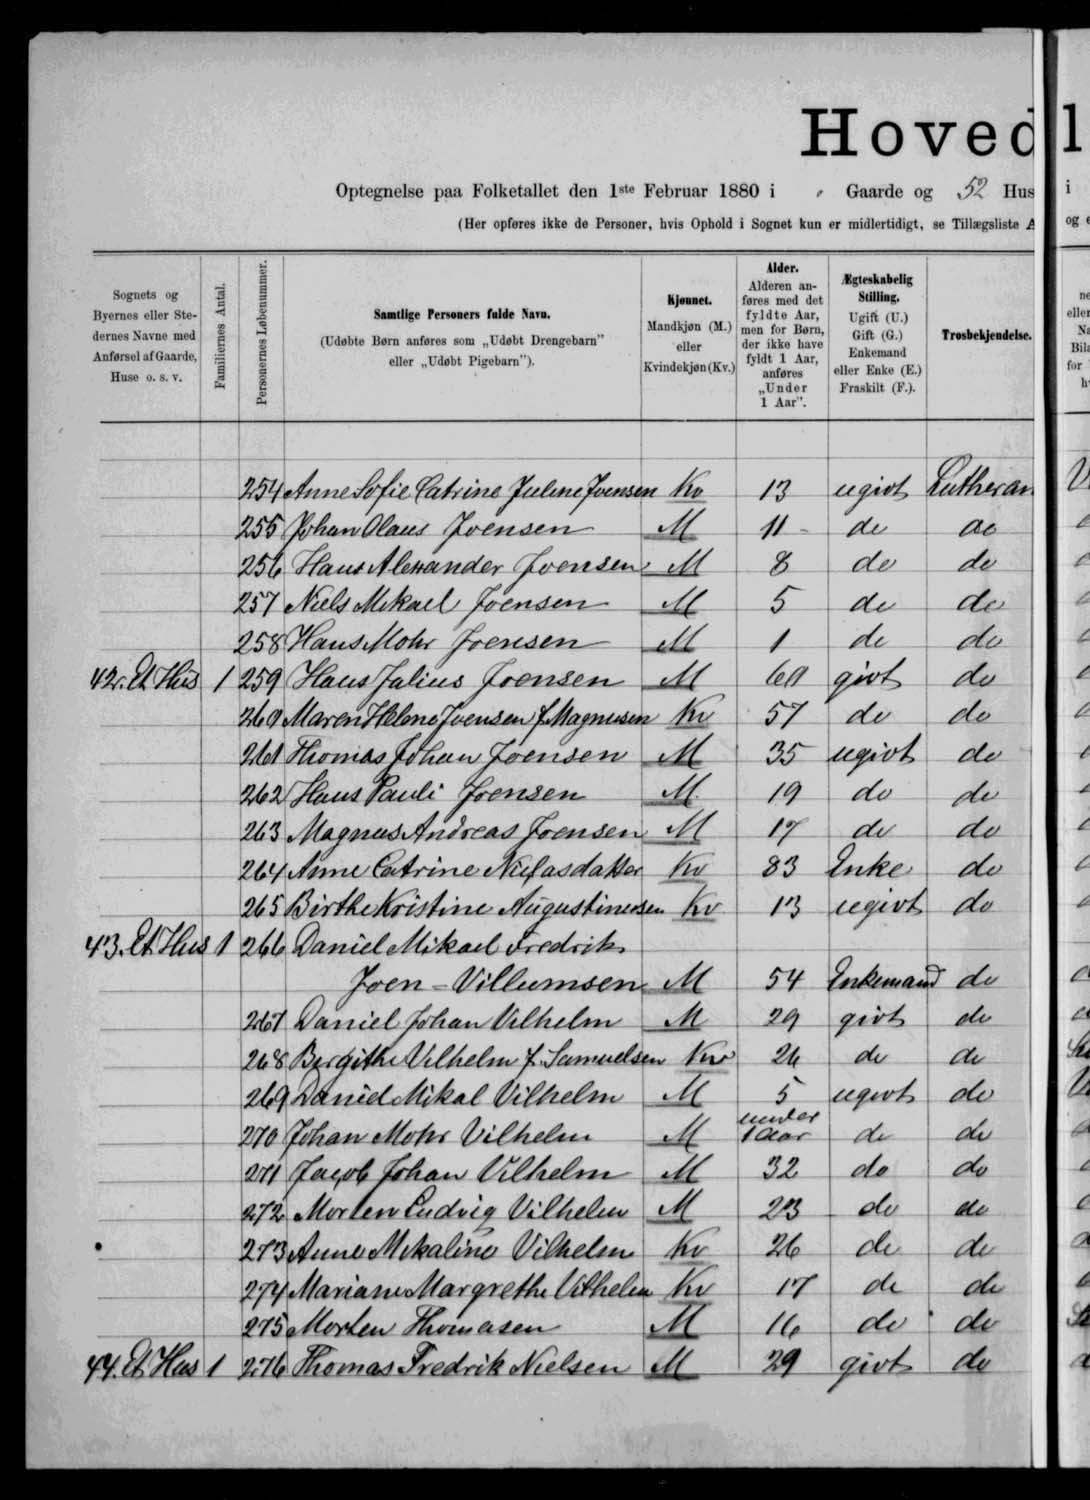 Hoved
Optegnelse paa Folketallet den 1ste Februar 1880 i Gaarde og 52 Hus
(Her opføres ikke de Personer, hvis Ophold i Sognet kun er midlertidigt, se Tillægsliste A
Sognets og Byernes eller Stedernes Navne med Anførsel af Gaarde, Huse o. s. v.
Familiernes Antal.
Personernes Løbenummer.
Samtlige Personers fulde Navn.
(Udøbte Børn anføres som „Udøbt Drengebarn" eller „Udøbt Pigebarn").
Kjønnet.
Mandkjøn (M.) eller Kvindekjøn (Kv.)
Alder.
Alderen anføres med det fyldte Aar, men for Børn, der ikke have fyldt 1 Aar, anføres „Under 1 Aar".
Ægteskabelig Stilling.
Ugift (U.) Gift (G.) Enkemand eller Enke (E.) Fraskilt (F.).
Trosbekjendelse.
254 Anne Sofie Catrine Juline Joensen Kv 13 ugivt Lutheran
255 Johan Olaus Joensen M 11 do do
256 Hans Alexander Joensen M 8 do do
257 Niels Mikael Joensen M 5 do do
258 Hans Mohr Joensen M 1 do do
42. Et Hus 1 259 Hans Julius Joensen M 60 givt do
260 Maren Helene Joensen f. Magnusen Kv 57 do do
261 Thomas Johan Joensen M 35 ugivt do
262 Hans Pauli Joensen M 19 do do
263 Magnus Andreas Joensen M 17 do do
264 Anne Catrine Niclasdatter Kv 83 Enke do
265 Birthe Kristine Augustinusen Kv 13 ugivt do
43. Et Hus 1 266 Daniel Mikael Fredrik
Joen - Villumsen M 54 Enkemand do
267 Daniel Johan Vilhelm M 29 givt do
268 Bergithe Vilhelm f. Samuelsen Kv 26 do do
269 Daniel Mikal Vilhelm M 5 ugivt do
270 Johan Mohr Vilhelm M under 1 Aar do do
271 Jacob Johan Vilhelm M 32 do do
272 Morten Ludvig Vilhelm M 23 do do
273 Anne Mikaline Vilhelm Kv 26 do do
274 Mariane Margrethe Vilhelm Kv 17 do do
275 Morten Thomasen M 16 do do
44. Et Hus 1 276 Thomas Fredrik Nielsen M 29 givt do